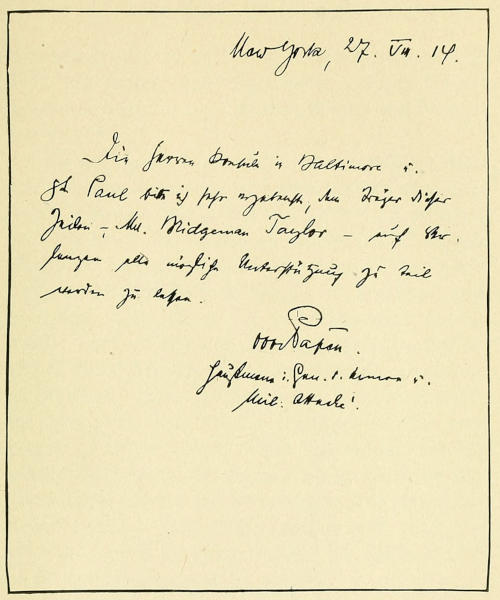 New York, 27. VIII. 14.
Die Herren Konsuln in Baltimore u.
St. Paul bitte ich sehr ergebenst, dem Träger dieser
Zeilen –, Mr. Bridgeman Taylor – auf Ver-
langen alle mögliche Unterstützung zu teil
werden zu lassen.
von Papen.
Hauptmann i. Gen. d. Armee u.
Mil. Attaché.